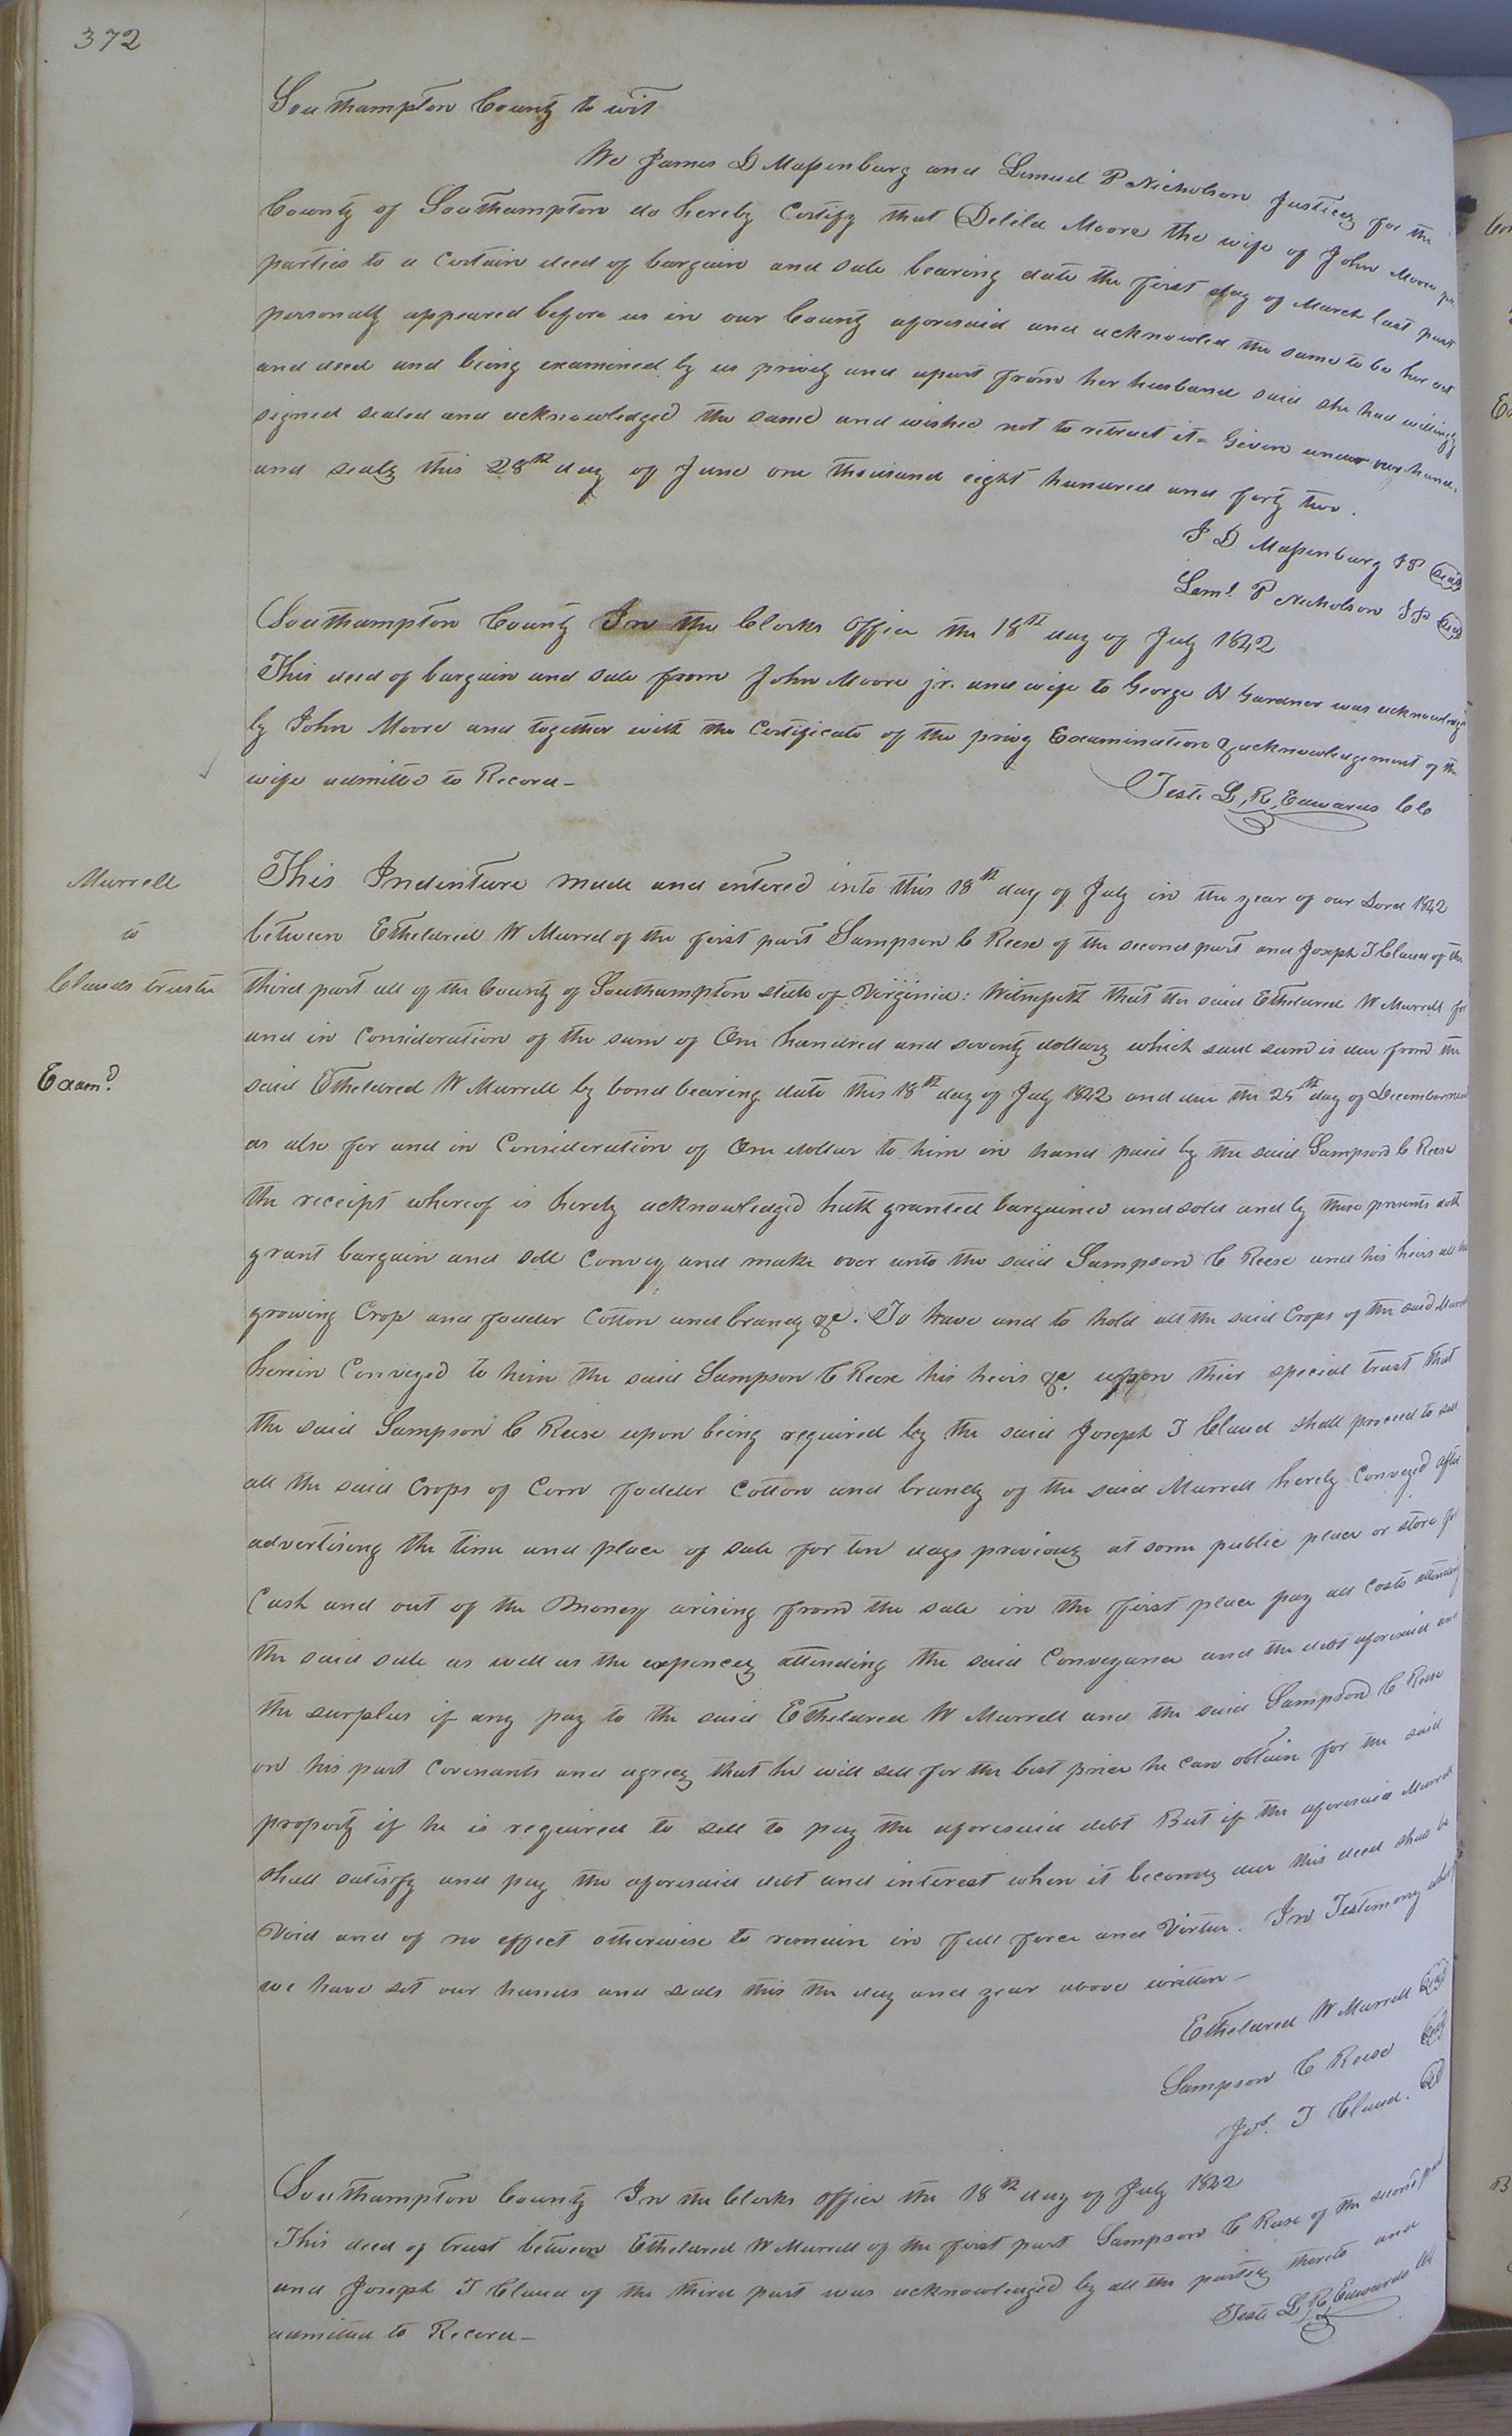 372
Southampton County to wit
We James D Massenburg and Lemuel P Nicholson Justices for the
County of Southampton do hereby Certify that Delila Moore the wife of John Moore jr
parties to a Certain deed of bargain and sale bearing date the first day of March last past
personally appeared before us in our County aforesaid and acknowled the same to be her act
and deed and being examined by us privily and apart from her husband said she had willingly
signed sealed and acknowledged the same and wished not to retract it. Given under our hands
and seals this 28th day of June one thousand eight hundred and forty two.
J D Massenburg JP Seal
Leml. P Nicholson JP Seal
Southampton County In the Clerks Office the 18th day of July 1842
This deed of bargain and sale from John Moore jr. and wife to George N Gardner was acknowledged
by John Moore and together with the Certificate of the privy Examination & acknowledgement of the
wife admitted to Record-
Teste L, R, Edwards Clk
Murrell
to
Clauds trustee
Examd.
This Indenture made and entered into this 18th day of July in the year of our Lord 1842
between Etheldred W Murrel of the first part Sampson C Reese of the second part and Joseph T Claud of the
third part all of the County of Southampton state of Virginia: Witnesseth that the said Etheldred W Murrell for
and in Consideration of the sum of One hundred and seventy dollars which said sum is due from the
said Etheldred W Murrell by bond bearing date this 18th day of July 1842 and due the 25th day of December next
as also for and in Consideration of One dollar to him in hand paid by the said Sampson C Reese
the receipt whereof is hereby acknowledged hath granted bargained and sold and by these presents doth
grant bargain and sell Convey and make over unto the said Sampson C Reese and his heirs all his
growing Crop and fodder Cotton and brandy &c. To have and to hold all the said Crops of the said Murrell
herein Conveyed to him the said Sampson C Reese his heirs &c. upon their special trust that
the said Sampson C Reese upon being required by the said Joseph T Claud shall proceed to sell
all the said Crops of Corn fodder Cotton and brandy of the said Murrell hereby Conveyed after
advertising the time and place of sale for ten days previously at some public place or store for
Cash and out of the Money arising from the sale in the first place pay all Costs attending
the said sale as well as the expences attending the said Conveyance and the debt aforesaid and
the surplus if any pay to the said Etheldred W Murrell and the said Sampson C Reese
on his part Covenants and agrees that he will sell for the best price he can obtain for the said
property if he is required to sell to pay the aforesaid debt But if the aforesaid Murrell
shall satisfy and pay the aforesaid debt and interest when it becomes due this deed shall be
Void and of no effect otherwise to remain in full force and Virtue. In Testimony whereof
we have set our hands and seals this the day and year above written-
Etheldred W Murrell Seal
Sampson C Reese Seal
Jos. T Claud. Seal
Southampton County In the Clerks Office the 18th day of July 1842
This deed of trust between Etheldred W Murrell of the first part Sampson C Reese of the second part
and Joseph T Claud of the third part was acknowledged by all the parties thereto and
admitted to Record-
Teste L, R, Edwards Clk